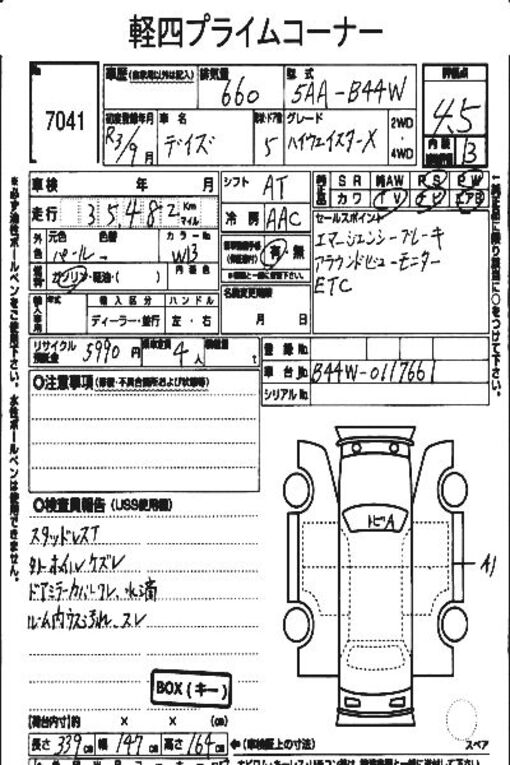 軽四プライムコーナー
No
7041
車歴(自家用以外は記入)
排気量 660
型式 5AA-B44W
評価点 4.5
内装 B
初度登録年月 R3/9月
車名 デイズ
ドア数 5
グレード ハイウェイスターX
2WD
4WD
車検 年 月
シフト AT
SR 純AW PS PW
カワ TV ナビ エアB
走行 35,482 Km マイル
冷房 AAC
セールスポイント
エマージェンシーブレーキ
アラウンドビューモニター
ETC
外色 元色 パール 色替 カラーNo W13
有・無
燃料 ガソリン・軽油・( ) 内装色
輸入車用 年式 輸入区分 ハンドル
ディーラー・並行 左・右
名義変更期限
月 日
リサイクル預託金 5990円
乗車定員 4人
積載量 t
登録No.
車台No. B44W-0117661
シリアルNo.
○注意事項(修復・不具合箇所および状態等)
○検査員報告(USS使用欄)
スタッドレスT
外ホイルケズレ
ドアミラーカバーワレ、水滴
ルーム内ウス汚れ、スレ
トビA
A1
BOX(キー)
スペア
【荷台内寸】約 × × (cm)
長さ 339cm 幅 147cm 高さ 164cm ←(車検証上の寸法)
※必ず油性ボールペンをご使用下さい。水性ボールペンは使用できません。